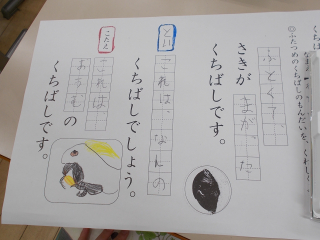 ◎ふたつめのくちばしのもんだいを、
ふとくて、
さきが まがった
くちばしです。
とい
これは、なんの
くちばしでしょう。
こたえ
これは、
おうむの
くちばしです。